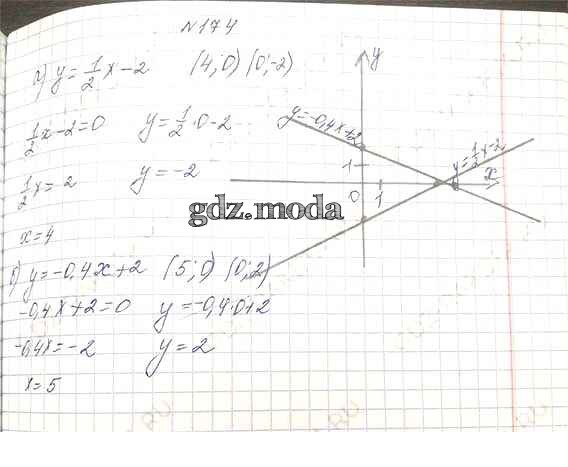 №174
а) y = 1/2 x - 2 (4; 0) (0; -2)
1/2 x - 2 = 0 y = 1/2 · 0 - 2
1/2 x = 2 y = -2
x = 4
б) y = -0,4x + 2 (5; 0) (0; 2)
-0,4x + 2 = 0 y = -0,4·0+2
-0,4x = -2 y = 2
x = 5
y
y = -0,4x+2
y = 1/2 x - 2
x
1
0
1
gdz.moda